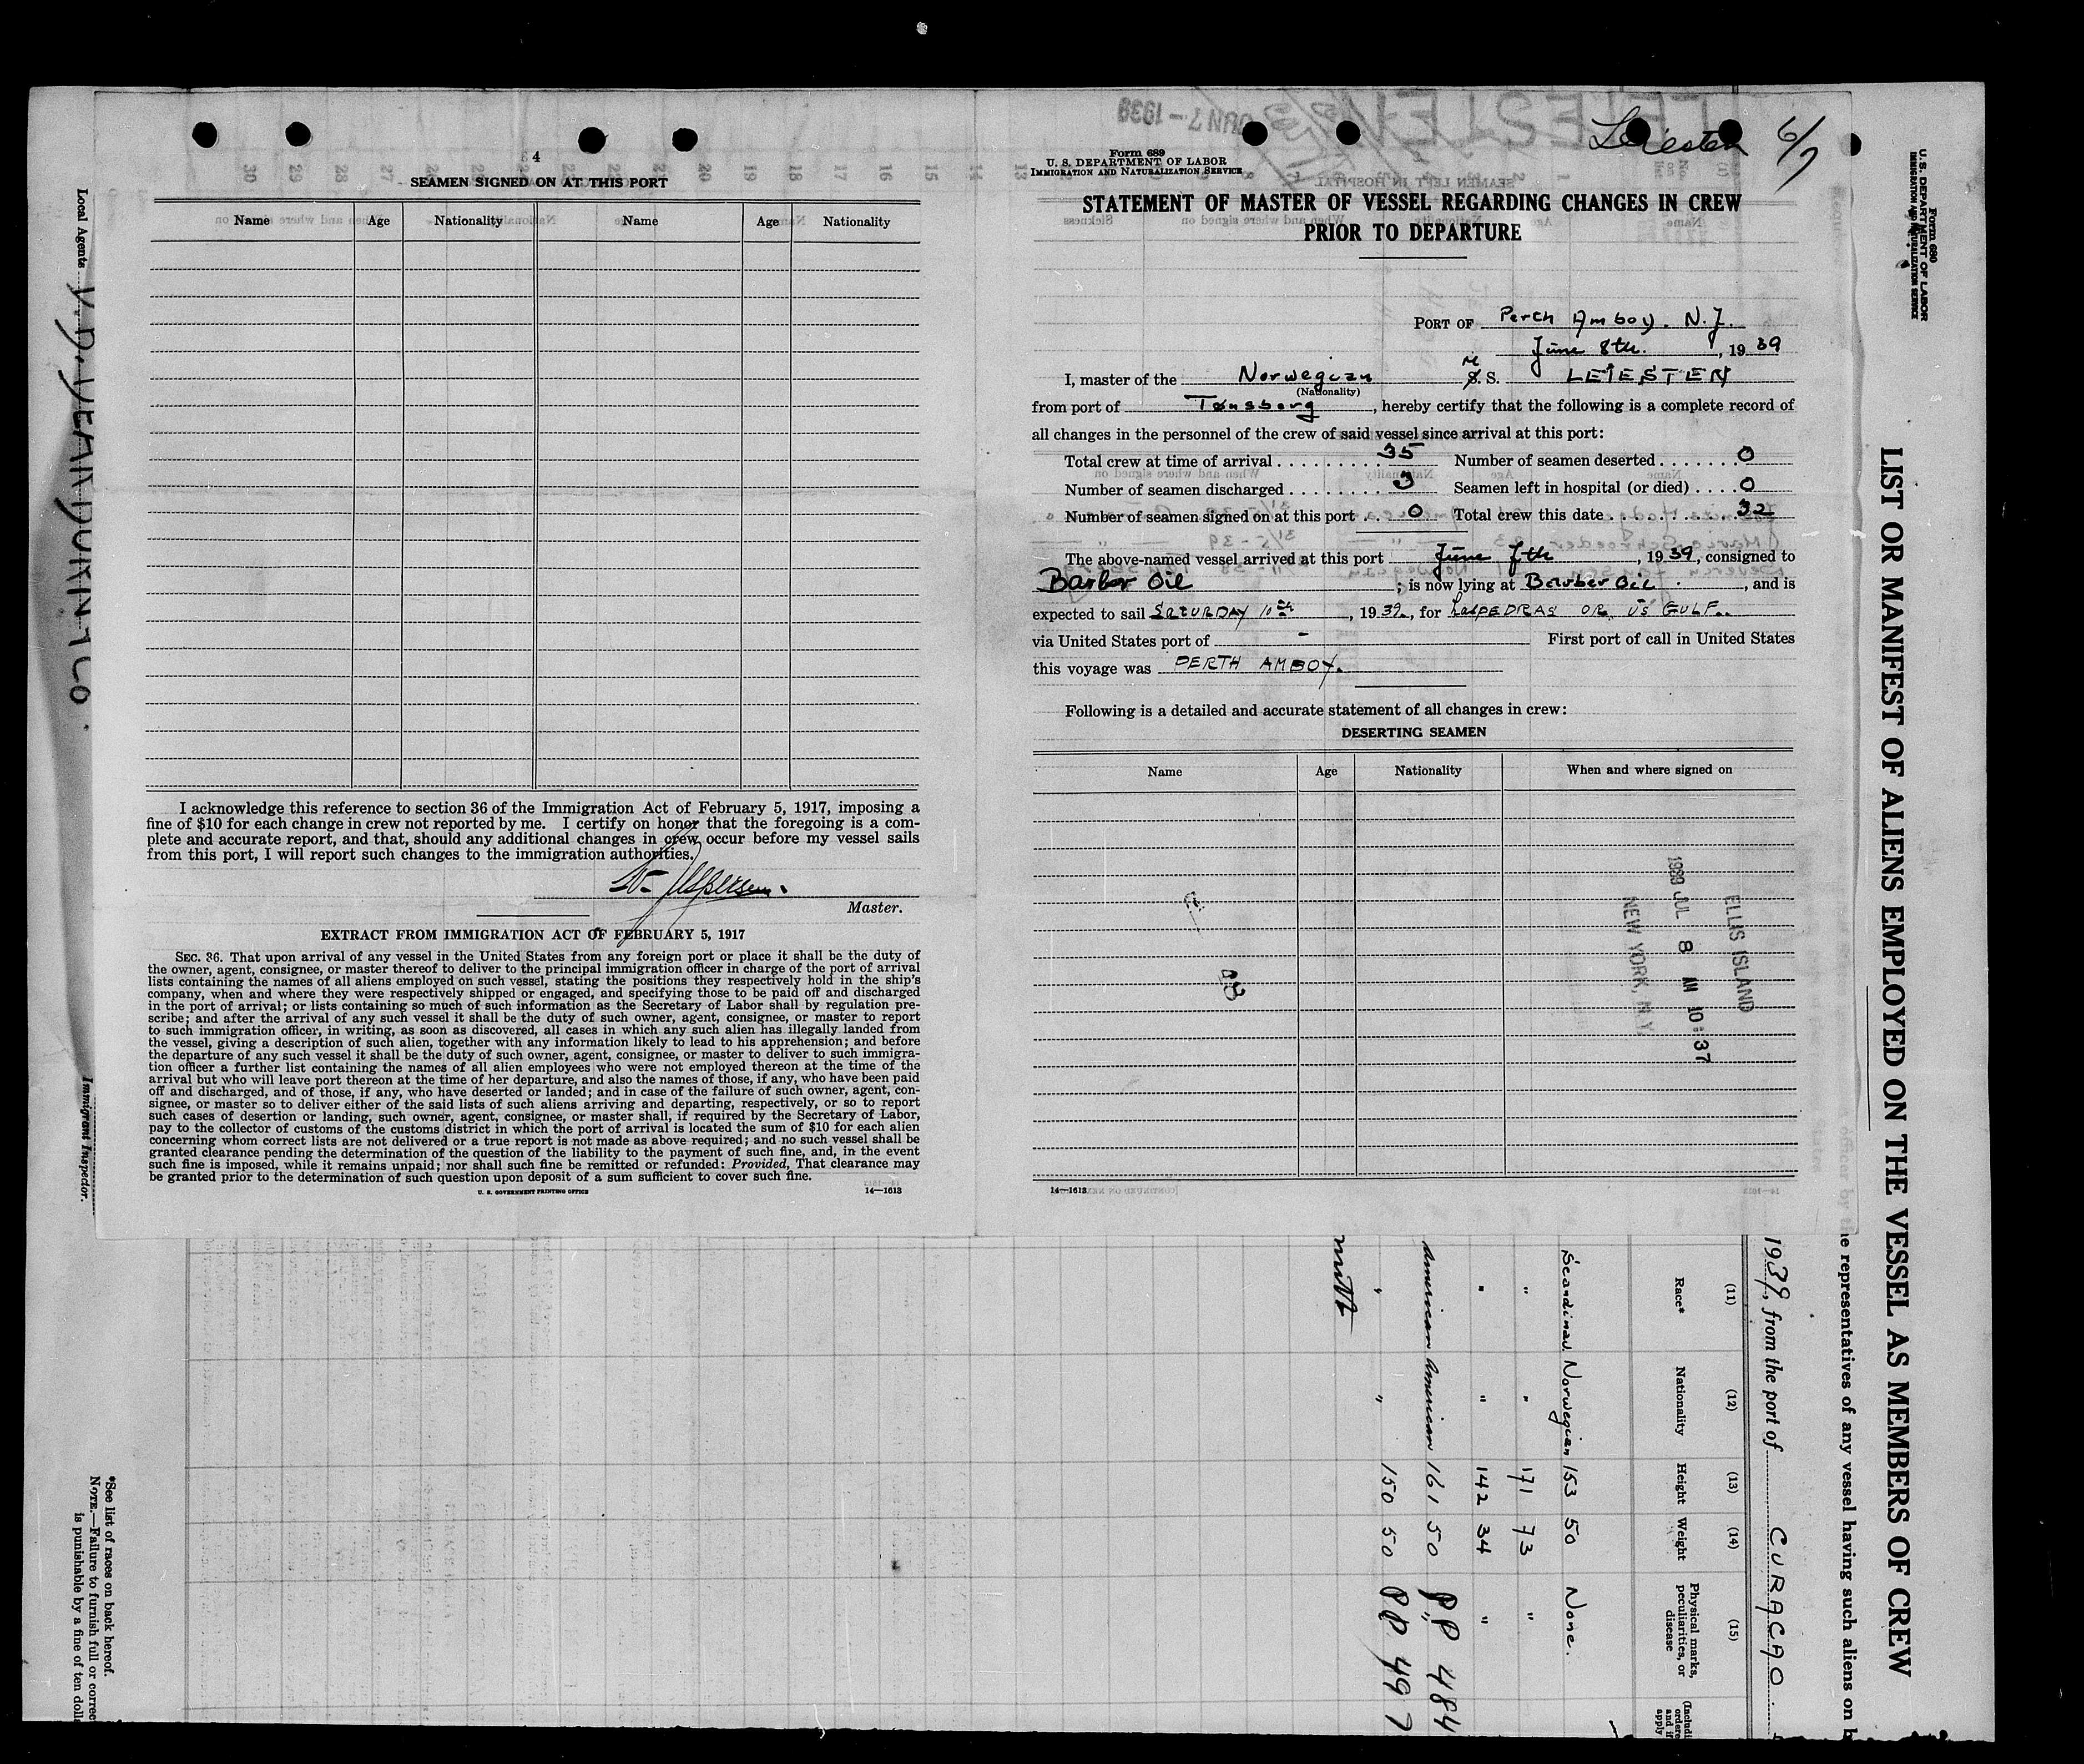 4
SEAMEN SIGNED ON AT THIS PORT
Name Age Nationality Name Age Nationality
I acknowledge this reference to section 36 of the Immigration Act of February 5, 1917, imposing a
fine of $10 for each change in crew not reported by me. I certify on honor that the foregoing is a com-
plete and accurate report, and that, should any additional changes in crew occur before my vessel sails
from this port, I will report such changes to the immigration authorities.
Master.
EXTRACT FROM IMMIGRATION ACT OF FEBRUARY 5, 1917
SEC. 36. That upon arrival of any vessel in the United States from any foreign port or place it shall be the duty of
the owner, agent, consignee, or master thereof to deliver to the principal immigration officer in charge of the port of arrival
lists containing the names of all aliens employed on such vessel, stating the positions they respectively hold in the ship's
company, when and where they were respectively shipped or engaged, and specifying those to be paid off and discharged
in the port of arrival; or lists containing so much of such information as the Secretary of Labor shall by regulation pre-
scribe; and after the arrival of any such vessel it shall be the duty of such owner, agent, consignee, or master to report
to such immigration officer, in writing, as soon as discovered, all cases in which any such alien has illegally landed from
the vessel, giving a description of such alien, together with any information likely to lead to his apprehension; and before
the departure of any such vessel it shall be the duty of such owner, agent, consignee, or master to deliver to such immigra-
tion officer a further list containing the names of all alien employees who were not employed thereon at the time of the
arrival but who will leave port thereon at the time of her departure, and also the names of those, if any, who have been paid
off and discharged, and of those, if any, who have deserted or landed; and in case of the failure of such owner, agent, con-
signee, or master so to deliver either of the said lists of such aliens arriving and departing, respectively, or so to report
such cases of desertion or landing, such owner, agent, consignee, or master shall, if required by the Secretary of Labor,
pay to the collector of customs of the customs district in which the port of arrival is located the sum of $10 for each alien
concerning whom correct lists are not delivered or a true report is not made as above required; and no such vessel shall be
granted clearance pending the determination of the question of the liability to the payment of such fine, and, in the event
such fine is imposed, while it remains unpaid; nor shall such fine be remitted or refunded: Provided, That clearance may
be granted prior to the determination of such question upon deposit of a sum sufficient to cover such fine.
U. S. GOVERNMENT PRINTING OFFICE 14—1613
Leiesten 6/7
Form 689
U. S. DEPARTMENT OF LABOR
IMMIGRATION AND NATURALIZATION SERVICE
STATEMENT OF MASTER OF VESSEL REGARDING CHANGES IN CREW
PRIOR TO DEPARTURE
PORT OF Perth Amboy. N.J.
June 8th. , 19 39
I, master of the Norwegian M S. S. LEIESTEN
(Nationality)
from port of Tønsberg , hereby certify that the following is a complete record of
all changes in the personnel of the crew of said vessel since arrival at this port:
Total crew at time of arrival 35 Number of seamen deserted 0
Number of seamen discharged 3 Seamen left in hospital (or died) 0
Number of seamen signed on at this port 0 Total crew this date 32
The above-named vessel arrived at this port June 7th , 19 39, consigned to
Barber Oil ; is now lying at Barber Oil , and is
expected to sail SATURDAY 10th , 19 39, for LASPEDRAS OR US GULF.
via United States port of - First port of call in United States
this voyage was PERTH AMBOY.
Following is a detailed and accurate statement of all changes in crew:
DESERTING SEAMEN
Name Age Nationality When and where signed on
ELLIS ISLAND
1939 JUL 8 AM 10:37
NEW YORK, N.Y.
14—1613
Form 680
U. S. DEPARTMENT OF LABOR
IMMIGRATION AND NATURALIZATION SERVICE
LIST OR MANIFEST OF ALIENS EMPLOYED ON THE VESSEL AS MEMBERS OF CREW
representatives of any vessel having such aliens on b
1939, from the port of CURAÇAO.
(11) (12) (13) (14) (15)
Race* Nationality Height Weight Physical marks, peculiarities, or disease
Scandinav. Norwegian 153 50 None.
" " 171 73 "
" " 142 34 "
American American 161 50 PP 484
" " 150 50 PP 497
Local Agents
Immigrant Inspector.
*See list of races on back hereof.
NOTE.—Failure to furnish full or correc
is punishable by a fine of ten dolla